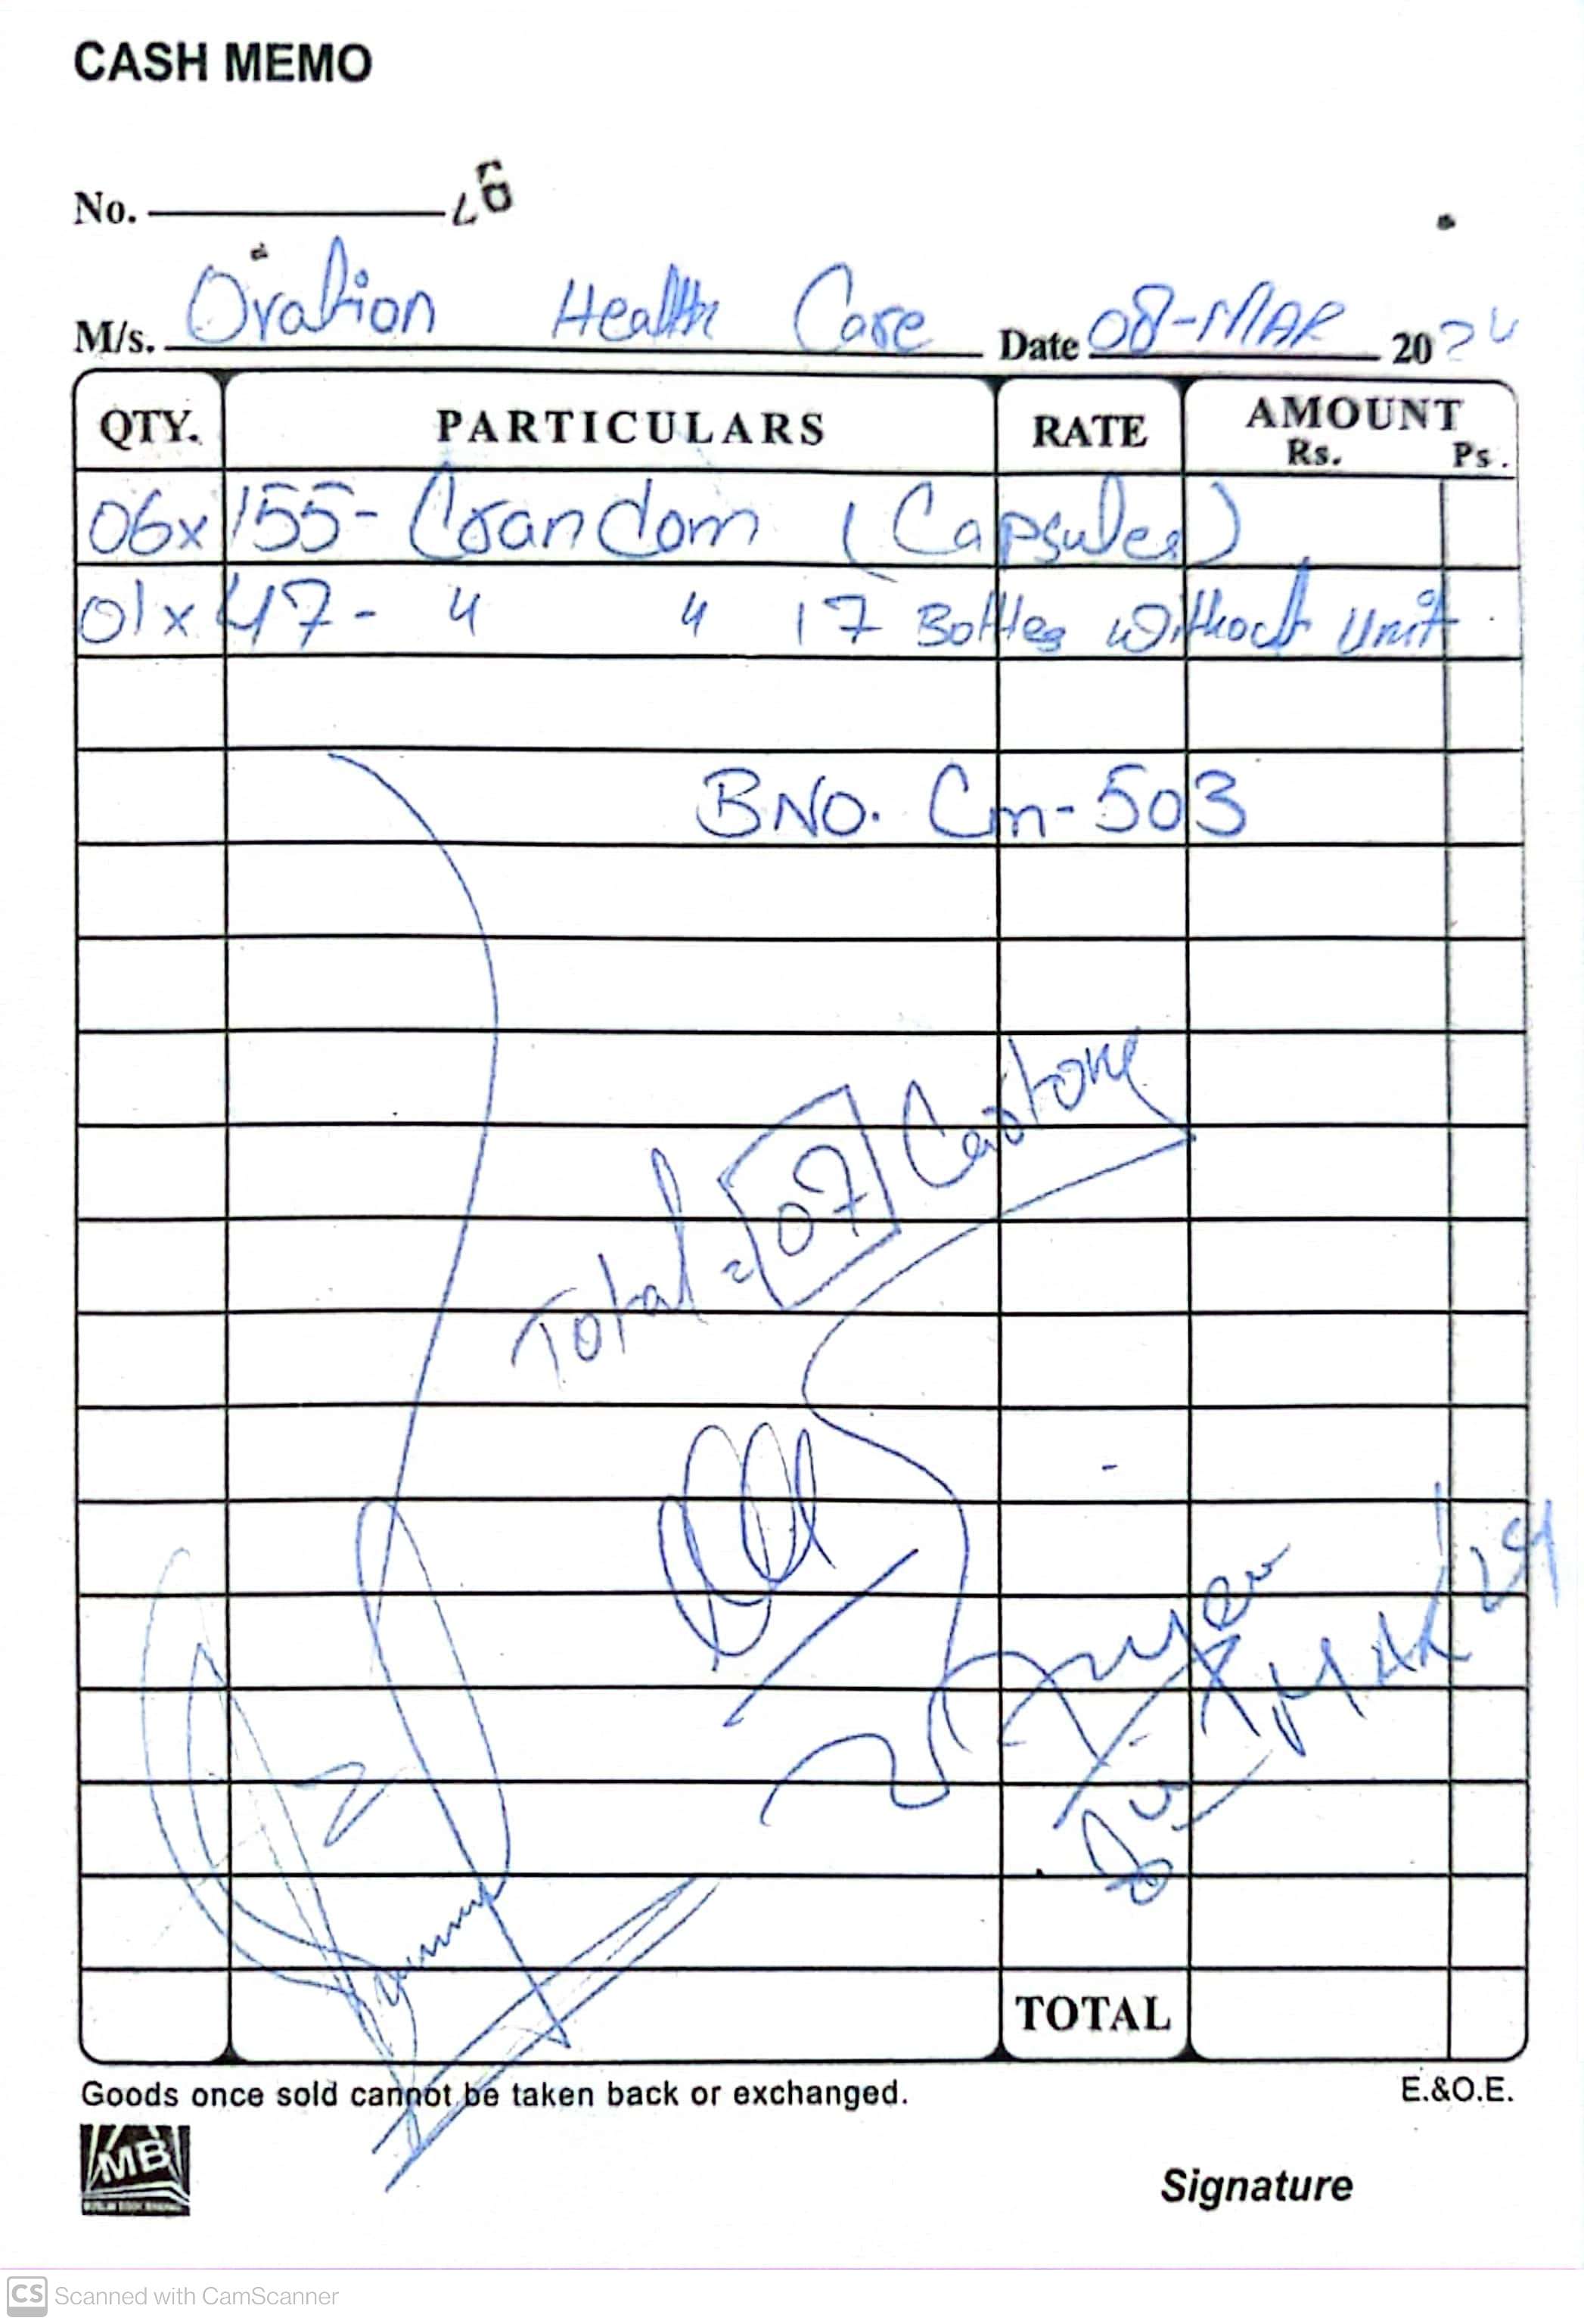 CASH MEMO
No.
M/s. Ovation Health Care Date 08-MAR 2024
QTY. PARTICULARS RATE AMOUNT
Rs. Ps.
06x 155- Crandom (Capsules)
01x 47- " " 17 Bottles without Unit
BNO. Cm-503
Total = 07 Cartons
TOTAL
Goods once sold cannot be taken back or exchanged. E.&O.E.
MB
Signature
CS Scanned with CamScanner